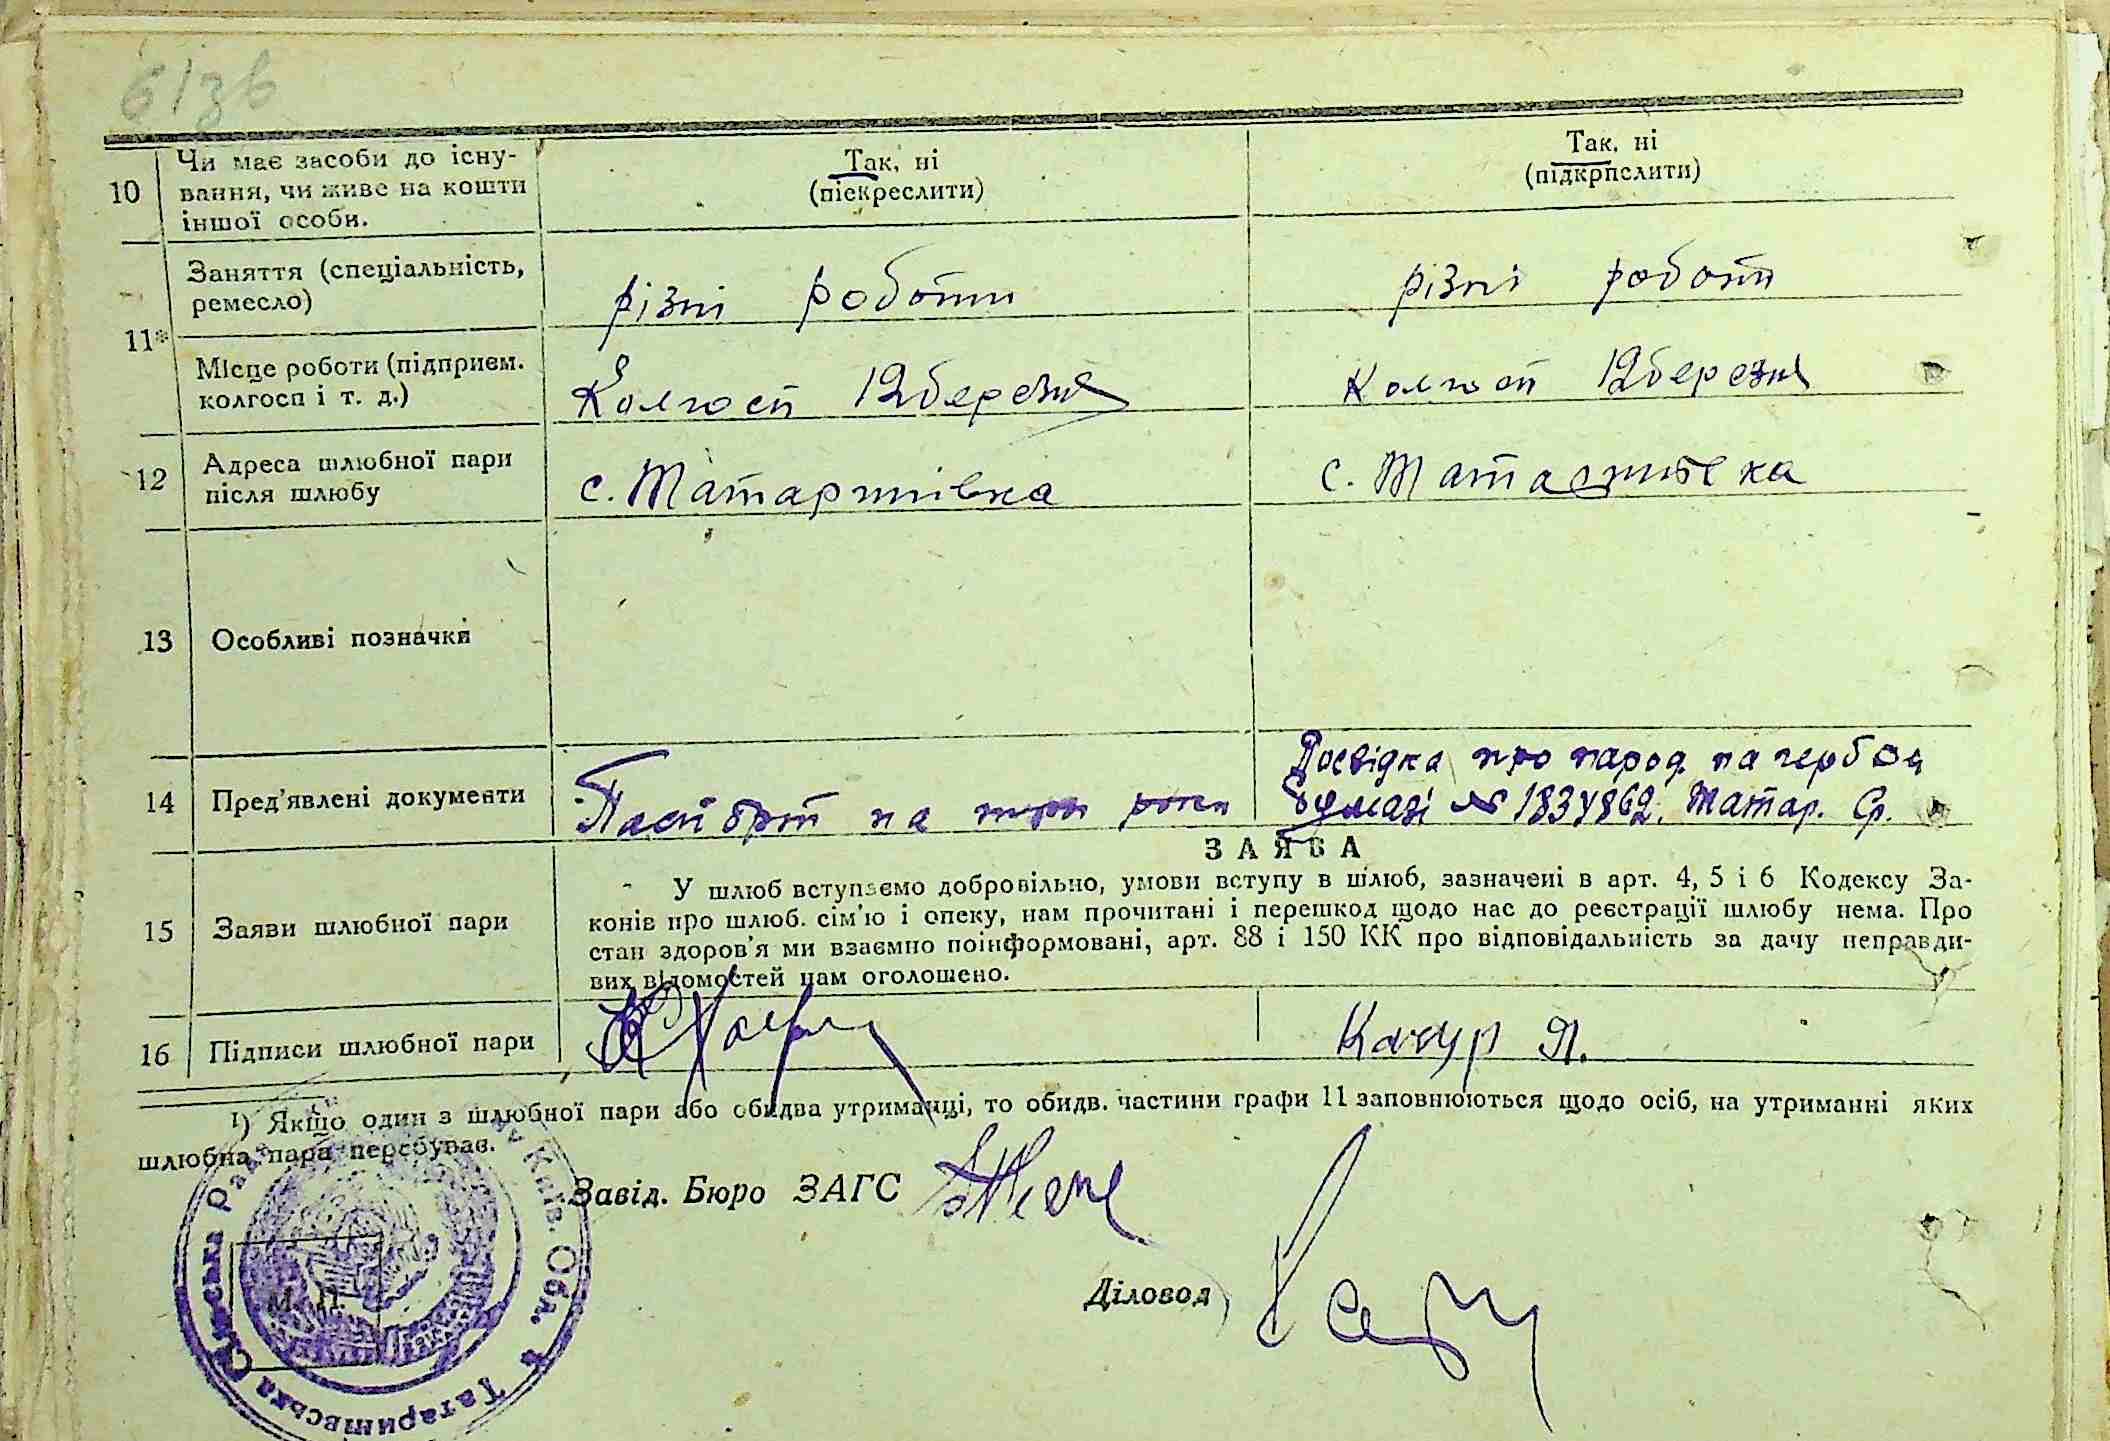 61зв
10
Чи має засоби до існу-
вання, чи живе на кошти
іншої особи.
Так, ні
(піекреслити)
Так, ні
(підкрпслити)
11
Заняття (спеціальність,
ремесло)
різні роботи
різні роботи
Місце роботи (підприєм.
колгосп і т. д.)
Колгосп 12 березня
Колгосп 12 березня
12
Адреса шлюбної пари
після шлюбу
с. Татаринівка
с. Татаринівка
13
Особливі позначки
14
Пред'явлені документи
Паспорт на три роки
Довідка про народ. на гербой
бумазі № 1834862. Татар. Ср.
15
Заяви шлюбної пари
ЗАЯВА
У шлюб вступаємо добровільно, умови вступу в шлюб, зазначені в арт. 4, 5 і 6 Кодексу За-
конів про шлюб. сім'ю і опеку, нам прочитані і перешкод щодо нас до реєстрації шлюбу нема. Про
стан здоров'я ми взаємно поінформовані, арт. 88 і 150 КК про відповідальність за дачу неправди-
вих відомостей нам оголошено.
16
Підписи шлюбної пари
Качур Я.
¹) Якщо один з шлюбної пари або обидва утриманці, то обидв. частини графи 11 заповнюються щодо осіб, на утриманні яких
шлюбна пара перебував.
Завід. Бюро ЗАГС
Діловод
М. П.
Татаринівська Сільська Рада
Київ. Обл.